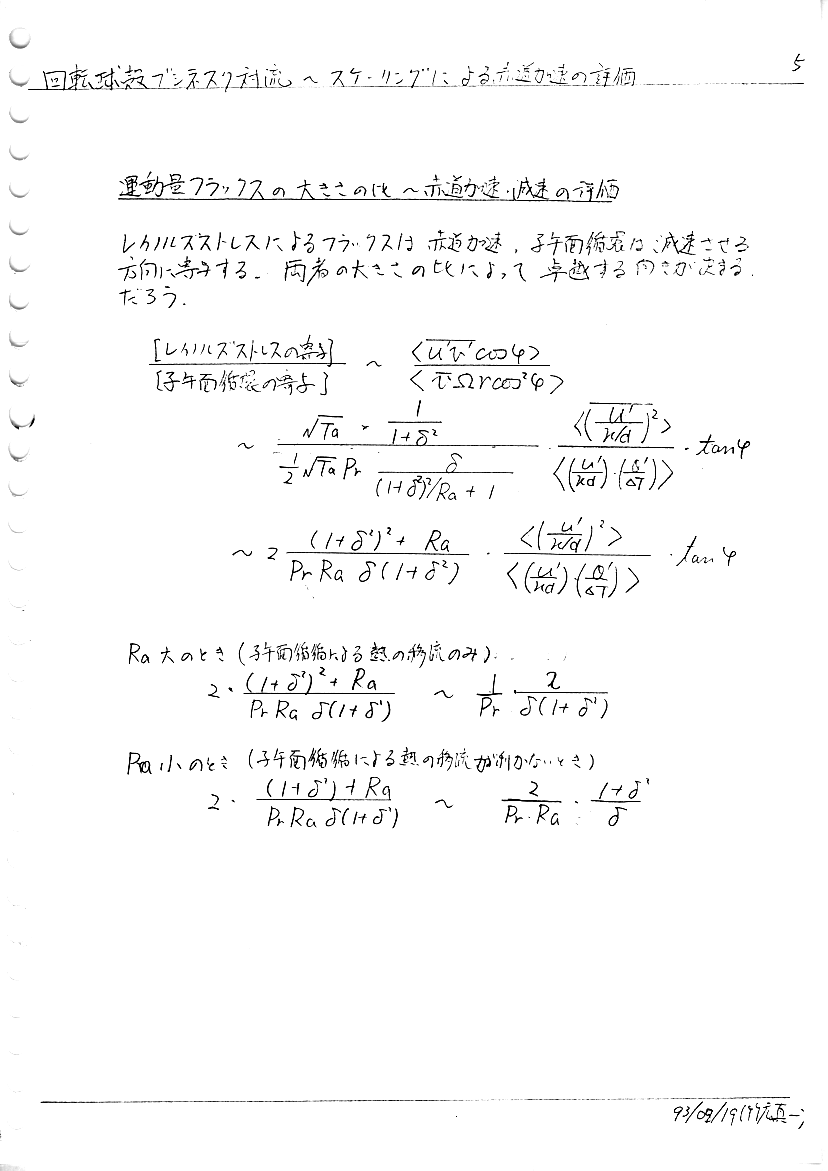 回転球殻ブシネスク対流 ~ スケーリングによる赤道加速の評価 5
運動量フラックスの大きさの比 ~ 赤道加速・減速の評価
レイノルズストレスによるフラックスは 赤道加速, 子午面循環は 減速させる
方向に寄与する. 両者の大きさの比によって 卓越する向きが決まる
だろう.
[レイノルズストレスの寄与] / [子午面循環の寄与] ~ <\overline{u'v'} cosφ> / <\overline{v} Ω r cos²φ>
~ (√Ta · 1/(1+δ²)) / (1/2 √Ta Pr δ/((1+δ²)²/Ra + 1)) · <\overline{(u'/(κ/d))²}> / <(u'/κd)·(θ'/ΔT)> · tanφ
~ 2 ((1+δ²)² + Ra) / (Pr Ra δ(1+δ²)) · <(u'/(κ/d))²> / <(u'/κd)·(θ'/ΔT)> · tanφ
Ra 大のとき (子午面循環による 熱の移流のみ)
2 · ((1+δ²)² + Ra) / (Pr Ra δ(1+δ²)) ~ 1/Pr · 2/(δ(1+δ²))
Ra 小のとき (子午面循環による熱の移流が利かないとき)
2 · ((1+δ²) + Ra) / (Pr Ra δ(1+δ²)) ~ 2/(Pr·Ra) · (1+δ²)/δ